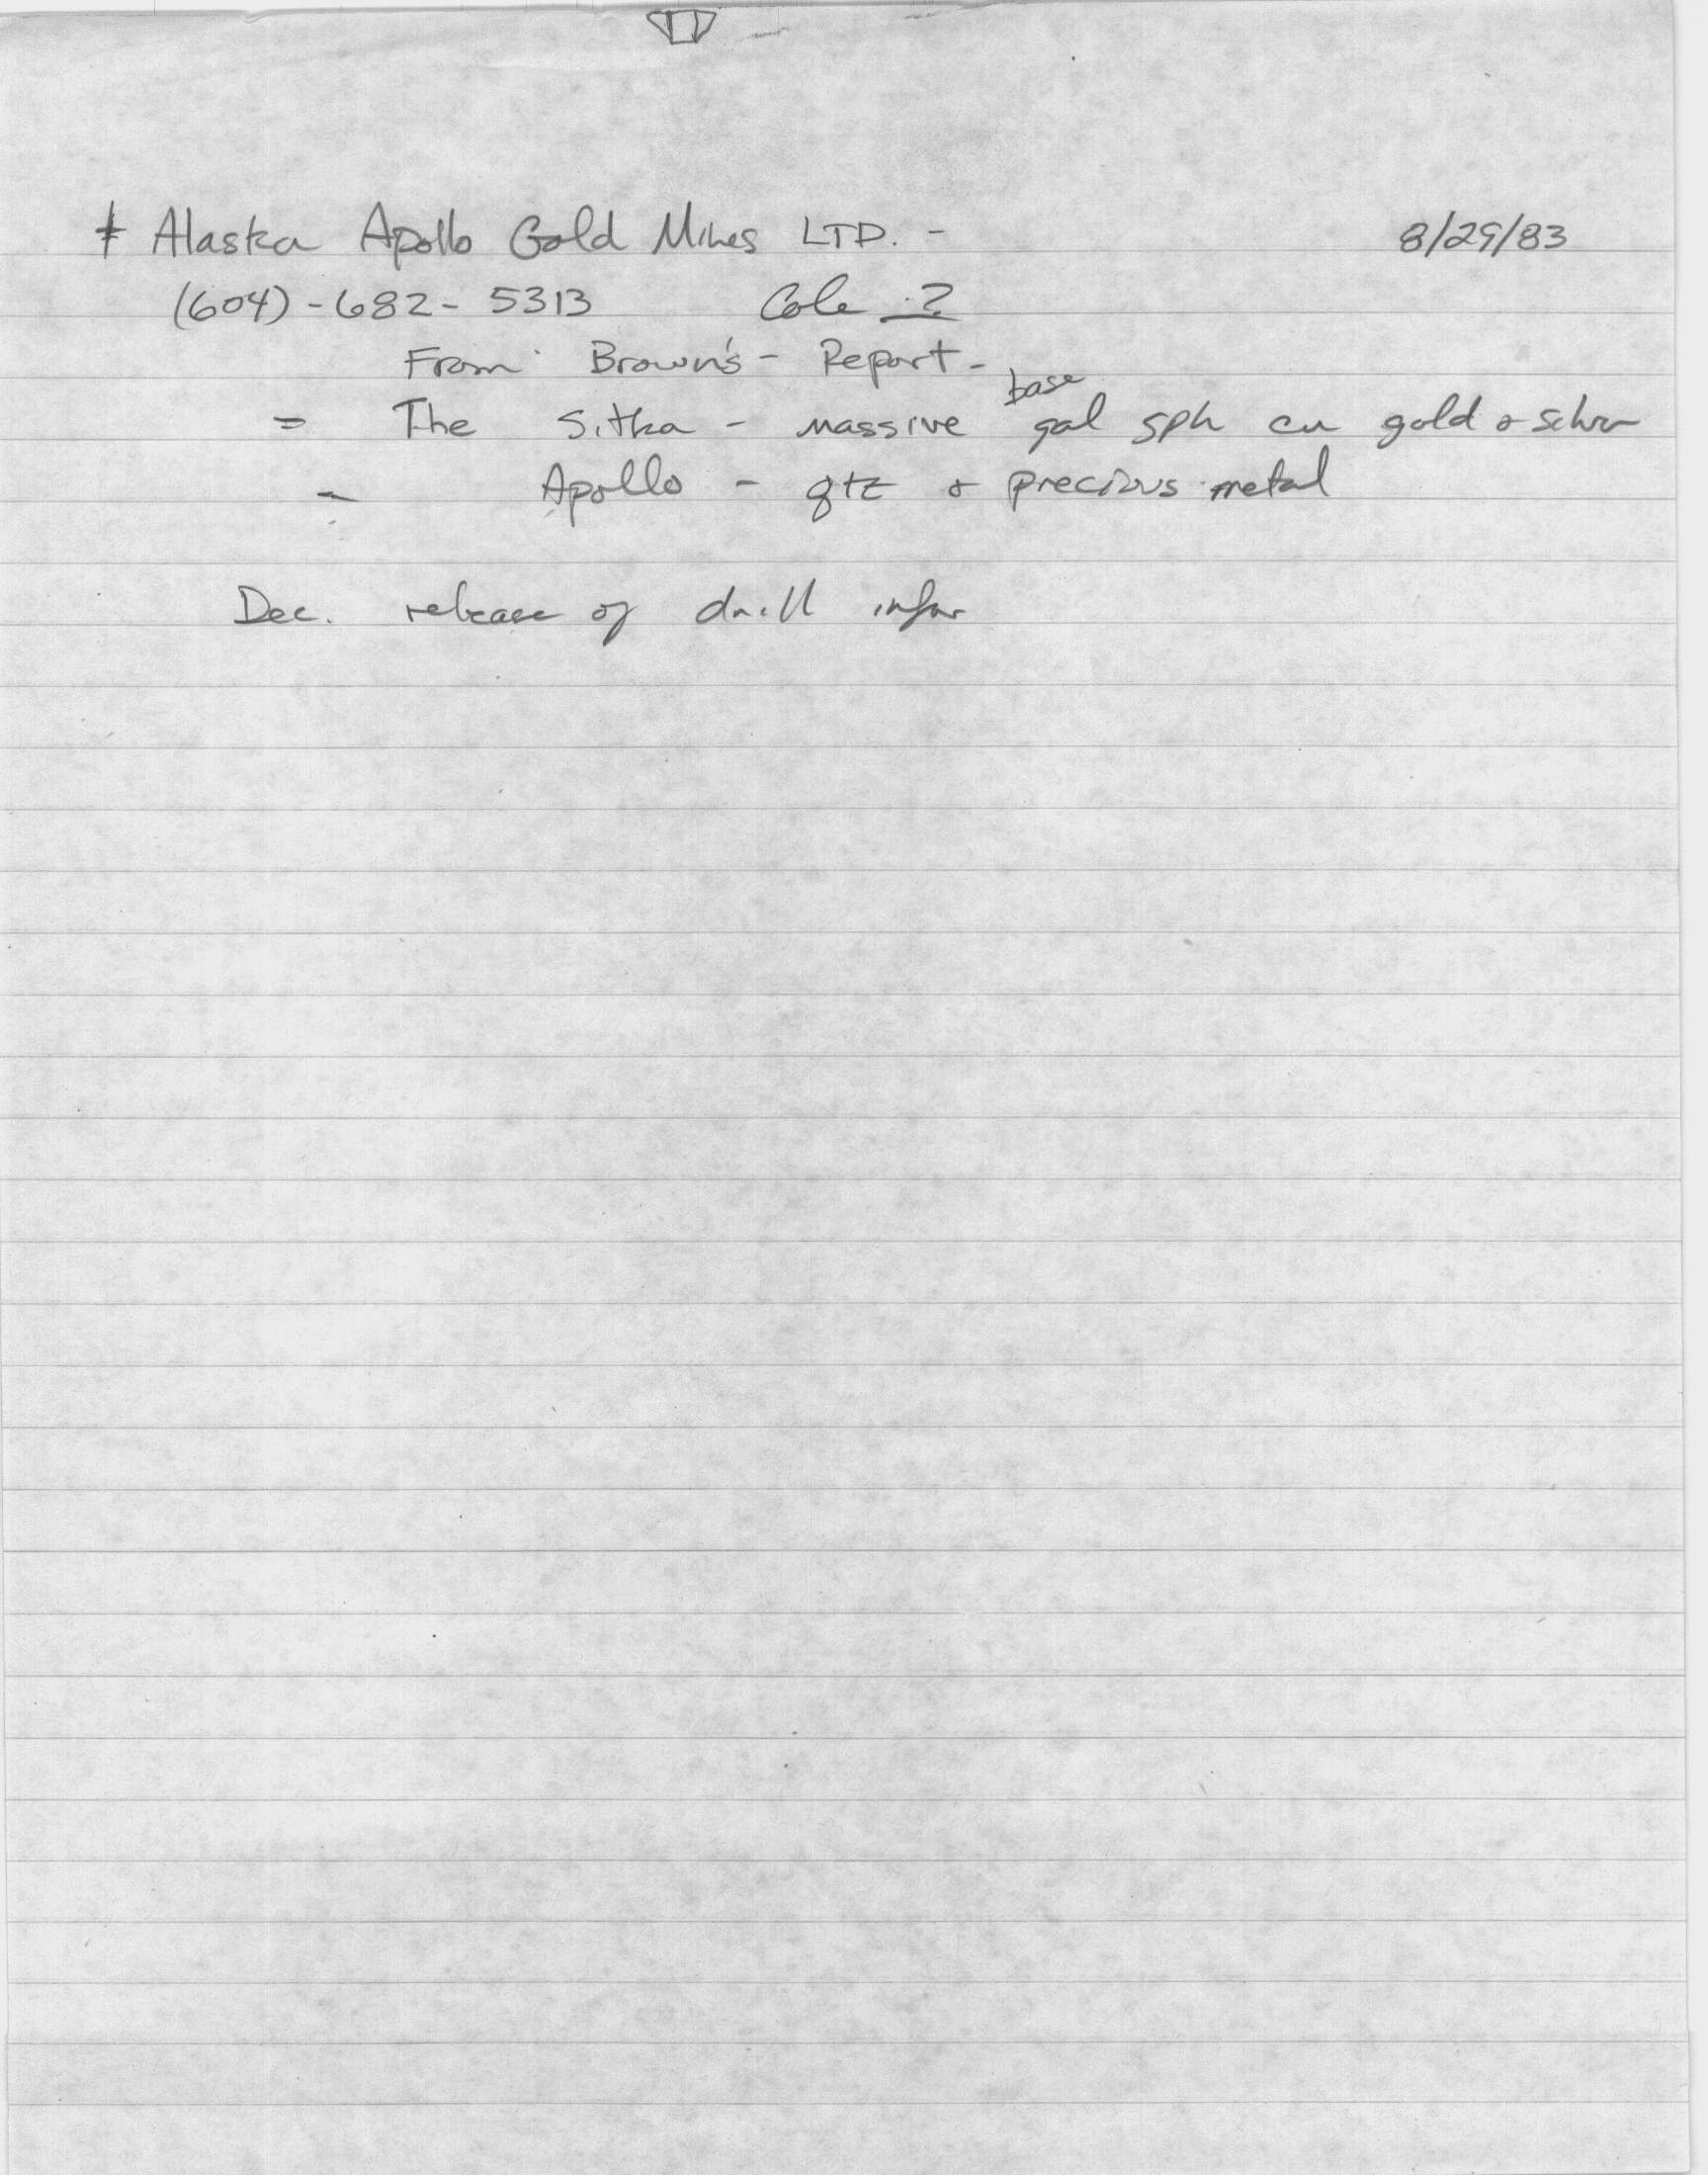 * Alaska Apollo Gold Mines LTD. - 8/29/83
(604)-682-5313 Cole ?
From Brown's - Report -
base
= The Sitka - massive gal sph cu gold & silver
- Apollo - qtz & precious metal
Dec. release of drill infor